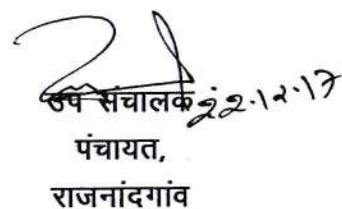 उप संचालक 22.12.17
पंचायत,
राजनांदगांव